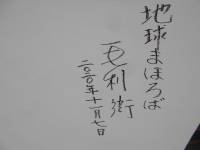 地球まほろば
毛利衛
二〇一〇年十一月七日